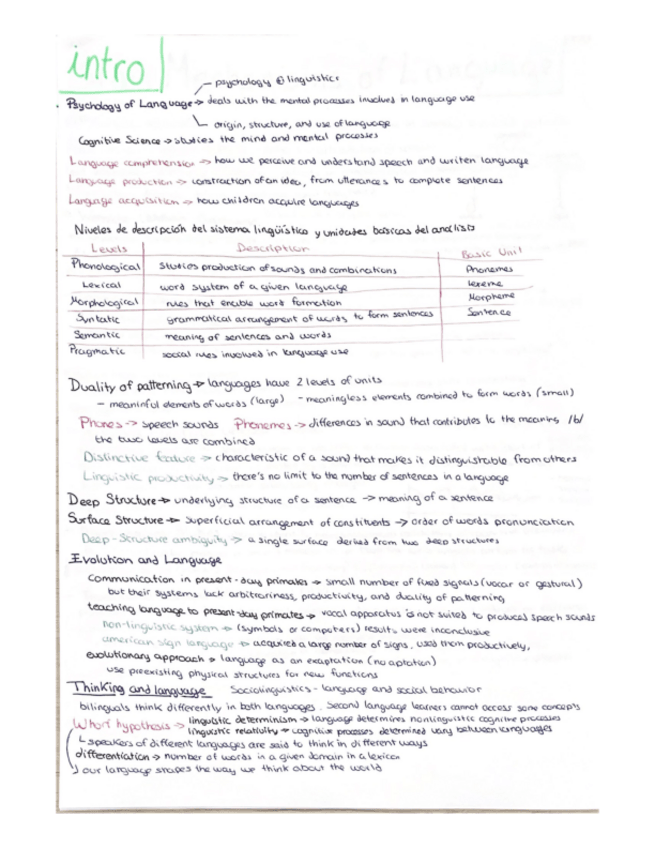 intro
psychology ⊕ linguistics
Psychology of Language → deals with the mental processes involved in language use
origin, structure, and use of language
Cognitive Science → studies the mind and mental processes
Language comprehension → how we perceive and understand speech and writen language
Language production → construction of an idea, from utterances to complete sentences
Language acquisition → how children acquire languages
Niveles de descripción del sistema lingüístico y unidades básicas del análisis
Levels Description Basic Unit
Phonological studies production of sounds and combinations Phonemes
Lexical word system of a given language lexeme
Morphological rules that enable word formation Morpheme
Syntatic grammatical arrangement of words to form sentences Sentence
Semantic meaning of sentences and words
Pragmatic social rules involved in language use
Duality of patterning → languages have 2 levels of units
- meaninful elements of words (large) - meaningless elements combined to form words (small)
Phones → speech sounds Phonemes → differences in sound that contributes to the meaning /b/
the two levels are combined
Distinctive feature → characteristic of a sound that makes it distinguishable from others
Linguistic productivity → there's no limit to the number of sentences in a language
Deep Structure → underlying structure of a sentence → meaning of a sentence
Surface Structure → superficial arrangement of constituents → order of words pronunciation
Deep-Structure ambiguity → a single surface derived from two deep structures
Evolution and Language
Communication in present-day primates → small number of fixed signals (vocar or gestural)
but their systems lack arbitrariness, productivity, and duality of patterning
teaching language to present day primates → vocal apparatus is not suited to produced speech sounds
non-linguistic system → (symbols or computers) results were inconclusive
american sign language → acquired a large number of signs, used them productively,
evolutionary approach → language as an exaptation (no aptation)
use preexisting physical structures for new functions
Thinking and language Sociolinguistics - language and social behavior
bilinguals think differently in both languages. Second language learners cannot access some concepts
Whorf hypothesis → linguistic determinism → language determines nonlinguistic cognitive processes
linguistic relativity → cognitive processes determined vary between languages
speakers of different languages are said to think in different ways
differentiation → number of words in a given domain in a lexicon
our language shapes the way we think about the world